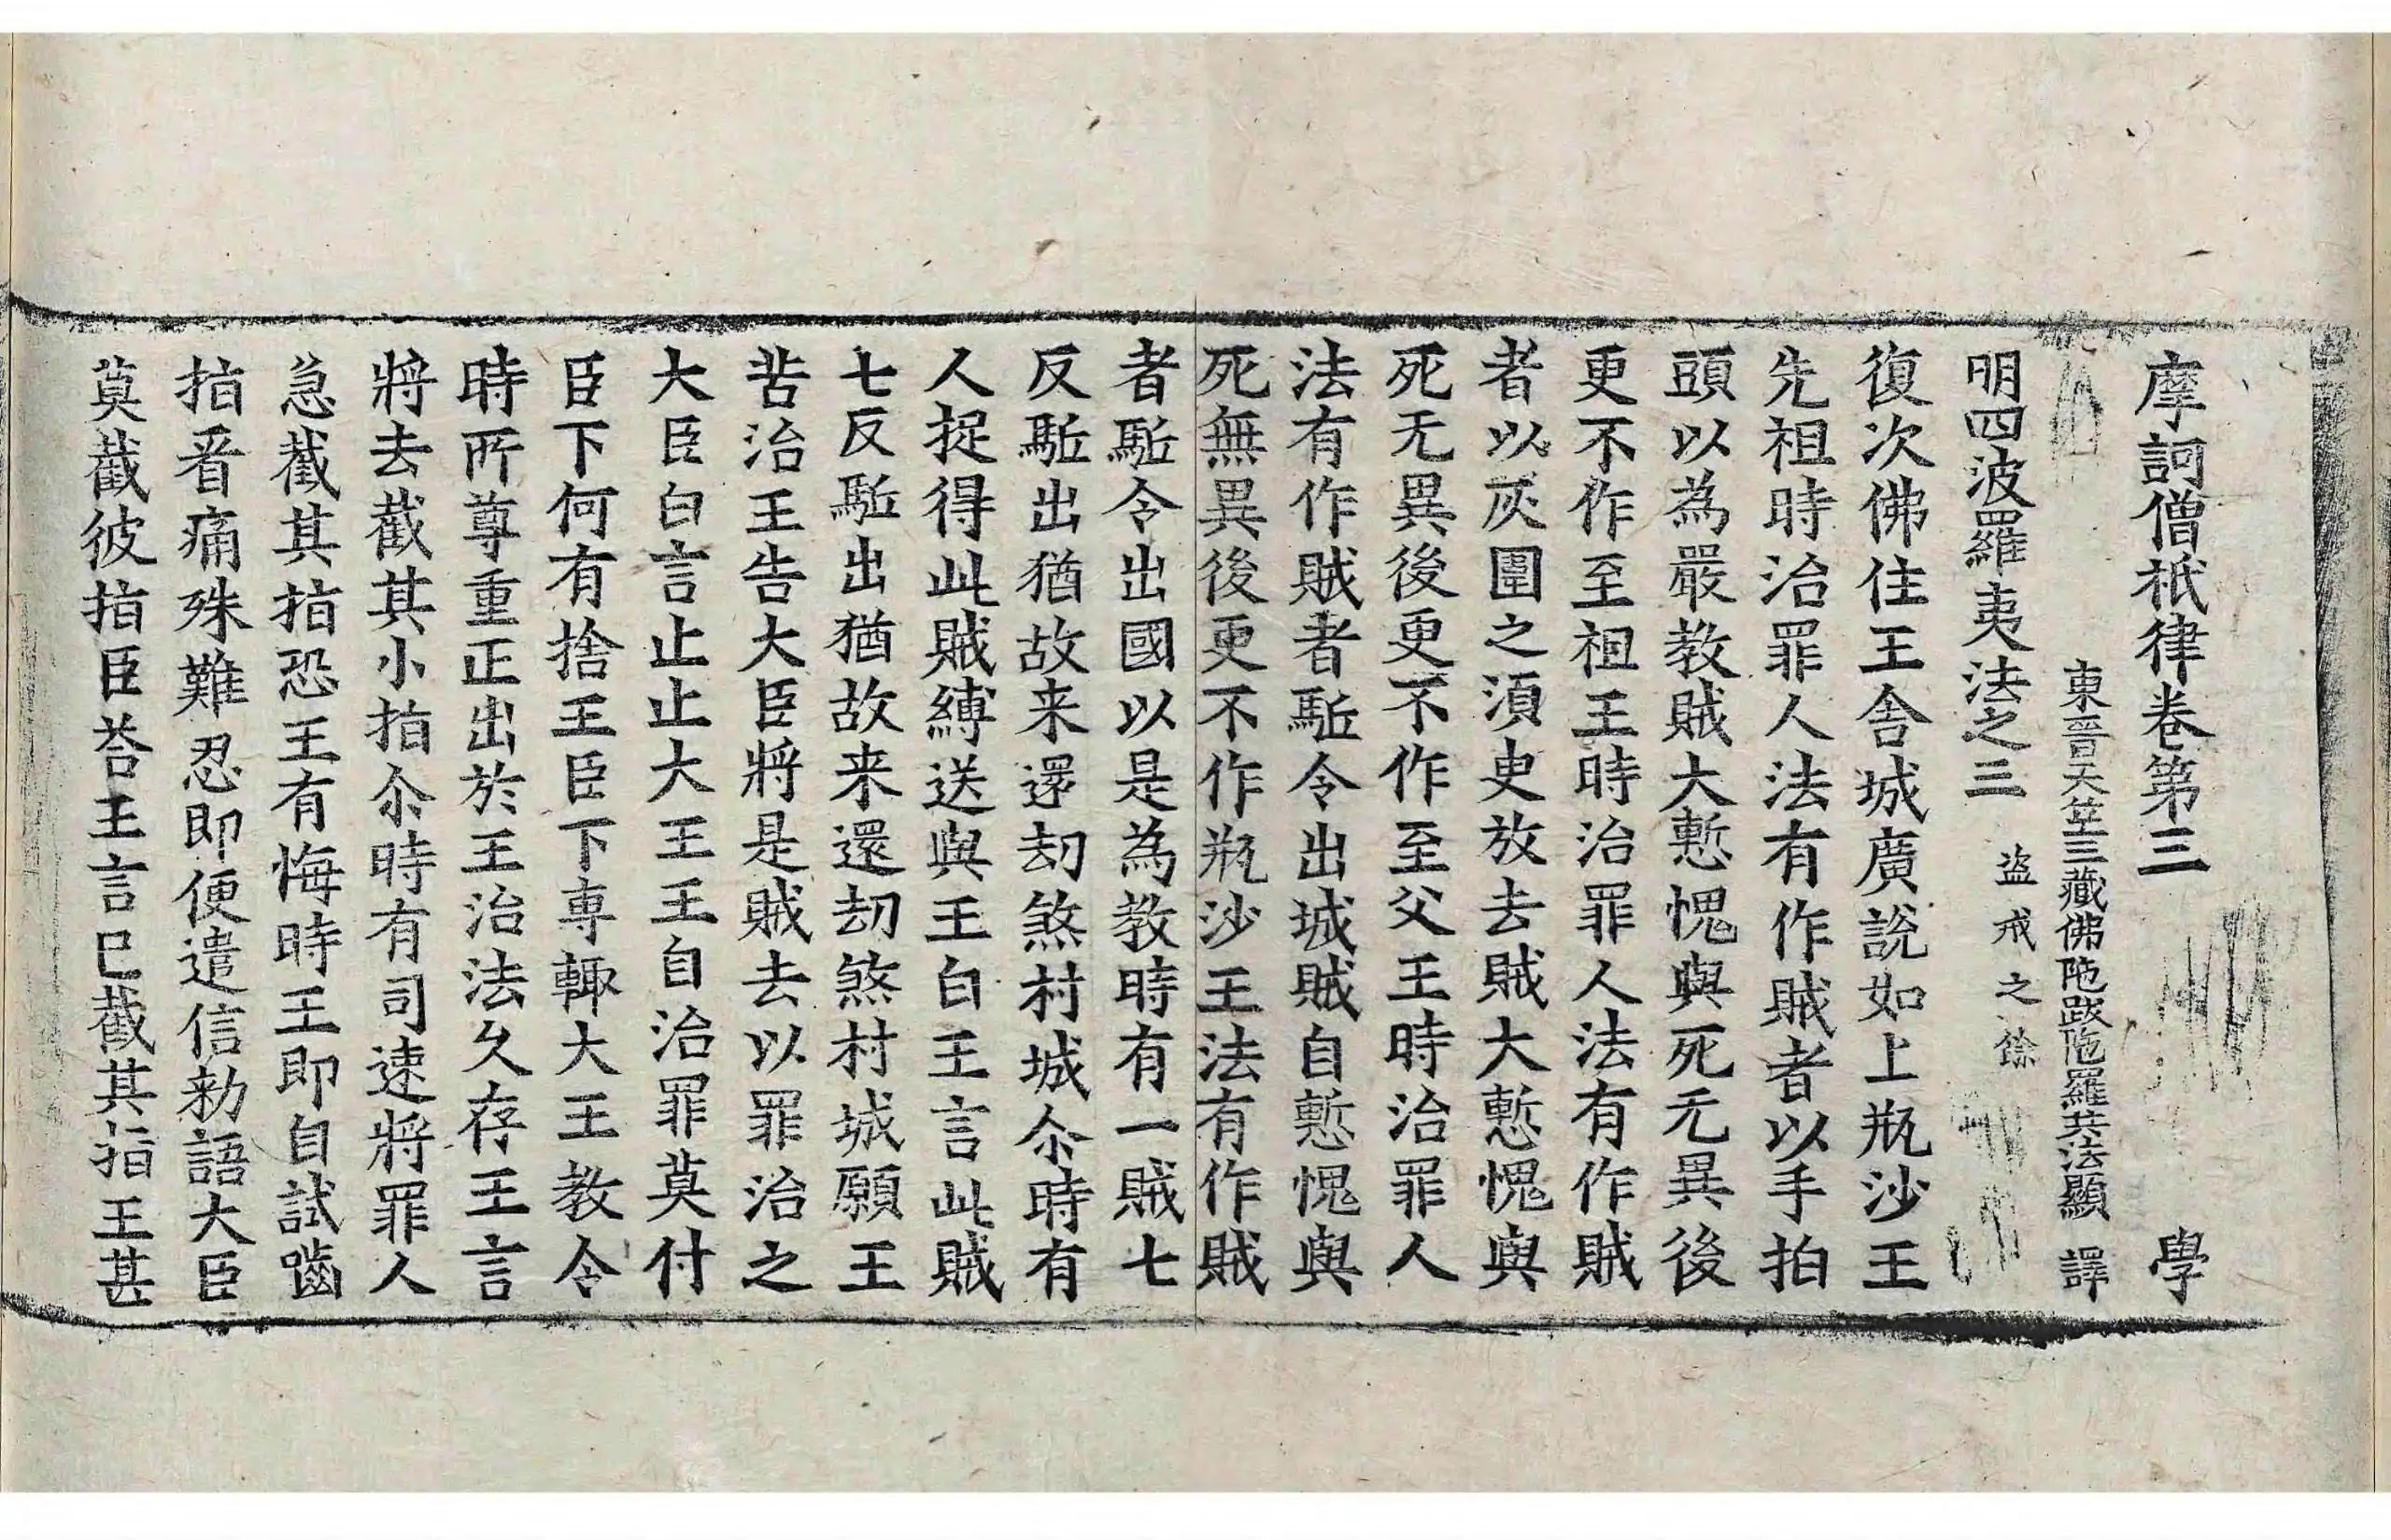 摩訶僧祇律卷第三 學
東晉天竺三藏佛陁跋陁羅共法顯 譯
明四波羅夷法之三 盜戒之餘
復次佛住王舍城廣說如上瓶沙王
先祖時治罪人法有作賊者以手拍
頭以為嚴教賊大慙愧與死无異後
更不作至祖王時治罪人法有作賊
者以灰圍之湏臾放去賊大慙愧與
死无異後更不作至父王時治罪人
法有作賊者駈令出城賊自慙愧與
死無異後更不作瓶沙王法有作賊
者駈令出國以是為教時有一賊七
反駈出猶故来還劫煞村城尒時有
人捉得此賊縛送與王白王言此賊
七反駈出猶故来還劫煞村城願王
苦治王告大臣將是賊去以罪治之
大臣白言止止大王王自治罪莫付
臣下何有捨王臣下専輙大王教令
時所尊重正出於王治法久存王言
將去截其小指尒時有司速將罪人
急截其指恐王有悔時王即自試嚙
指看痛殊難忍即便遣信勑語大臣
莫截彼指臣荅王言已截其指王甚